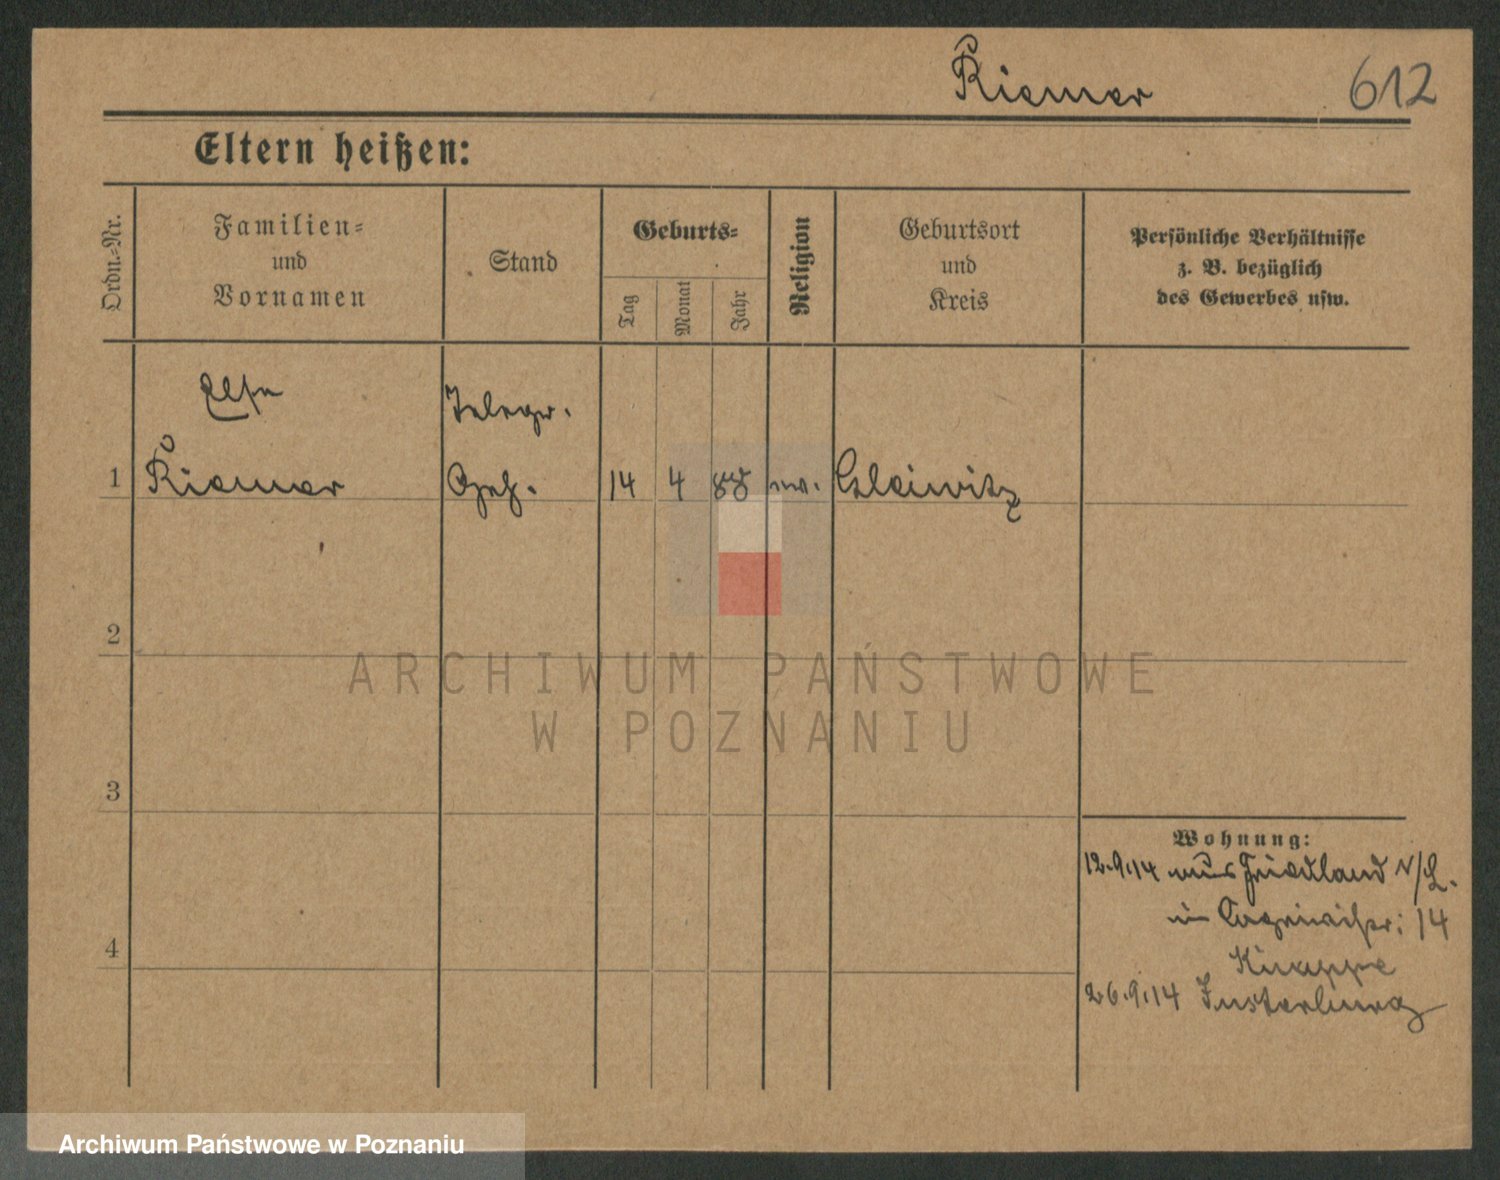 Riemer 612
Eltern heißen:
Ordn.-Nr.
Familien-
und
Vornamen
Stand
Geburts-
Tag
Monat
Jahr
Religion
Geburtsort
und
Kreis
Persönliche Verhältnisse
z. B. bezüglich
des Gewerbes usw.
Else
Telegr.
1 Riemer Geh. 14 4 88 Gleiwitz
2
3
4
Wohnung:
12.9.14 aus Friedland
14
Knappe
26.9.14 Insterburg
ARCHIWUM PAŃSTWOWE
W POZNANIU
Archiwum Państwowe w Poznaniu